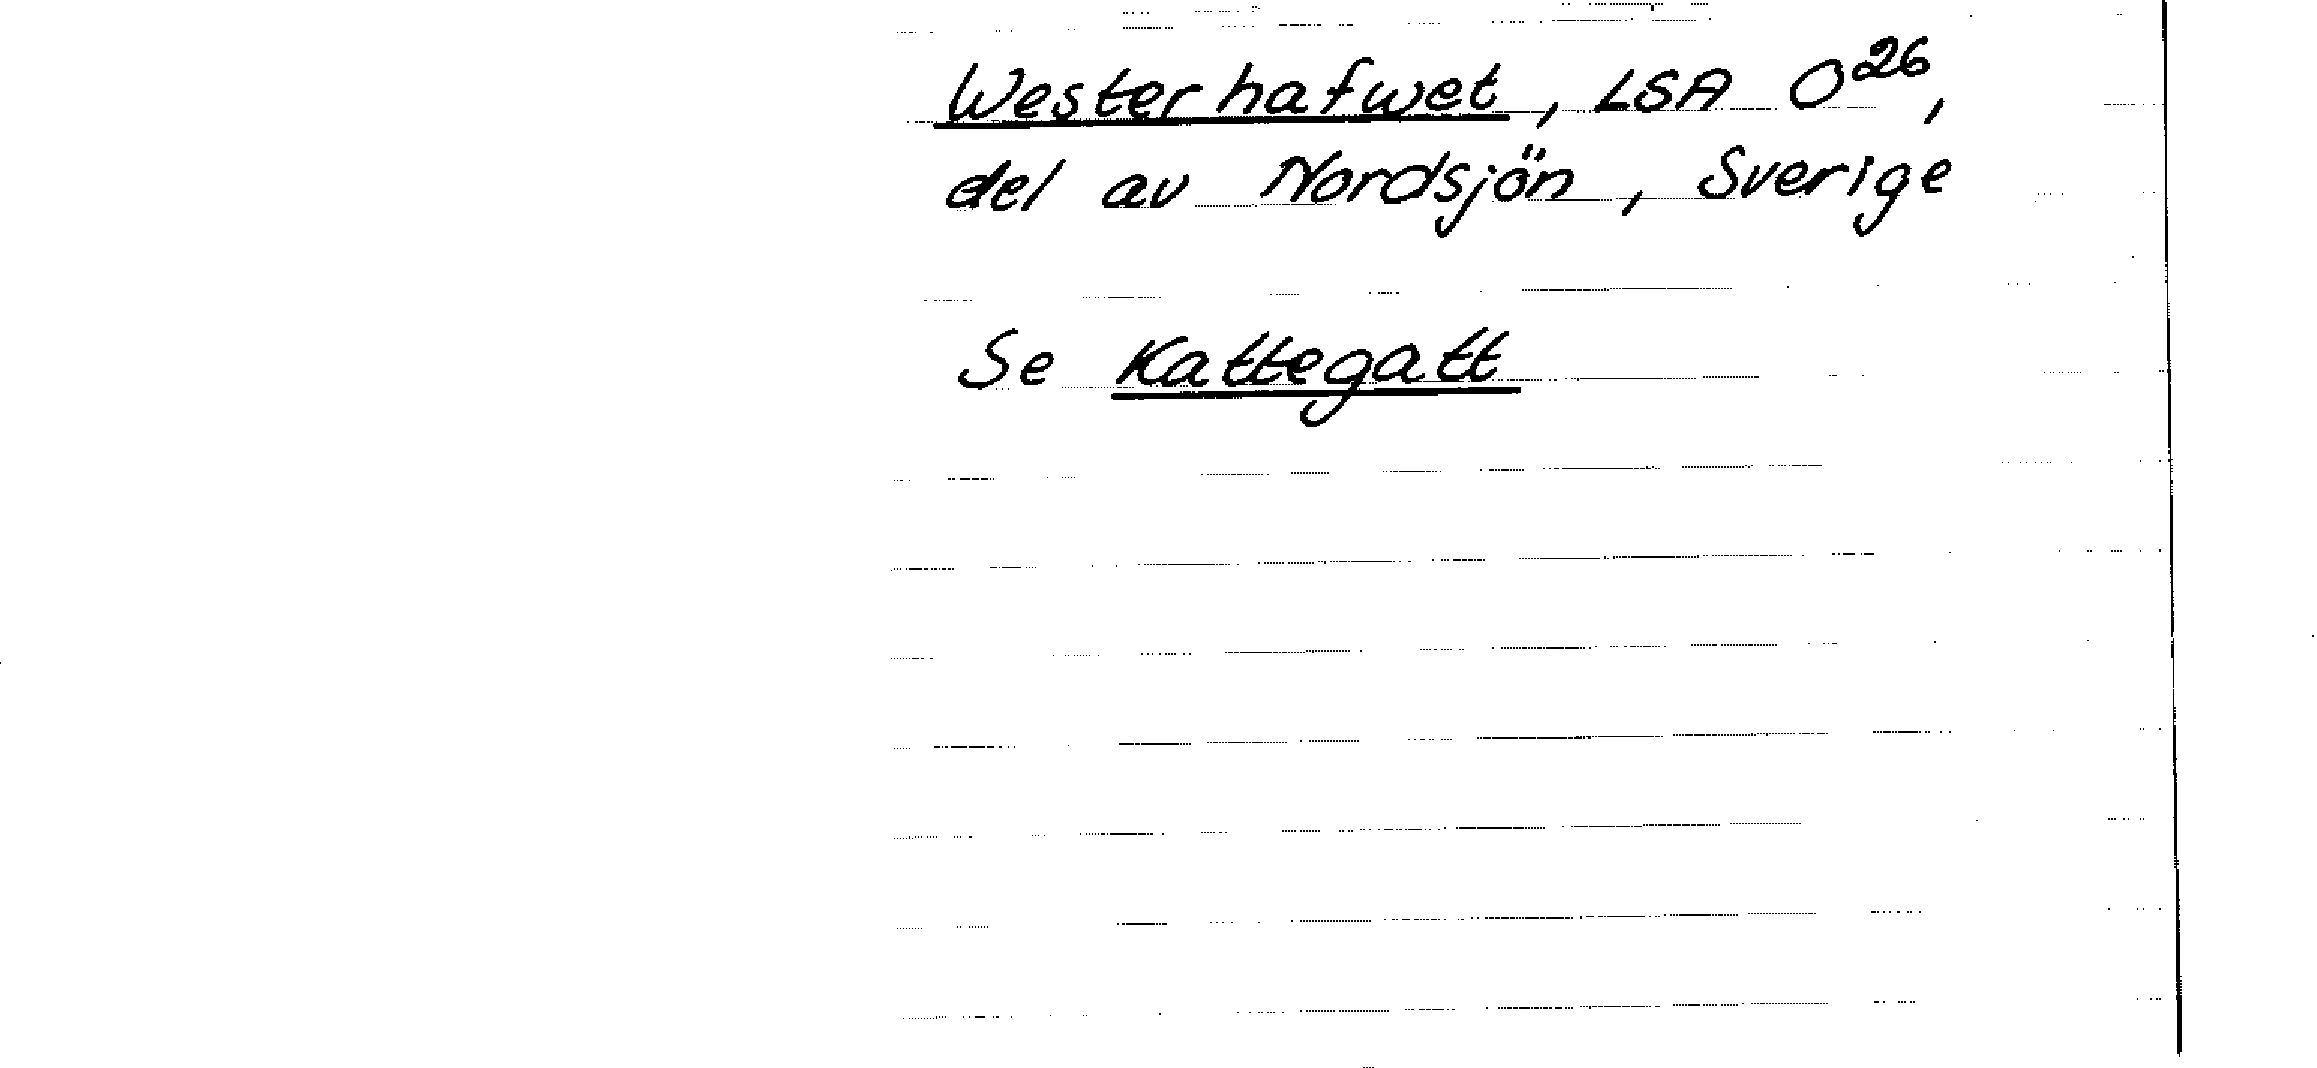 Westerhafwet, LSA O²⁶,
del av Nordsjön, Sverige
Se Kattegatt